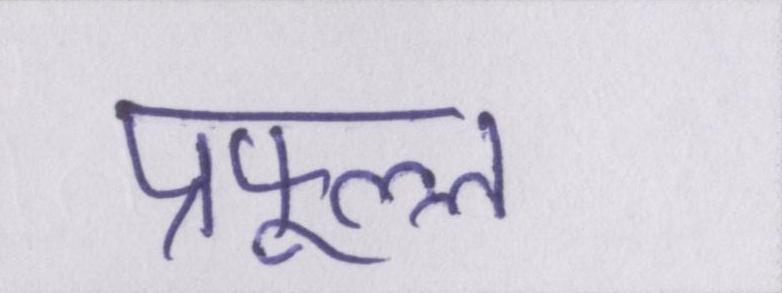 प्रफूल्ल